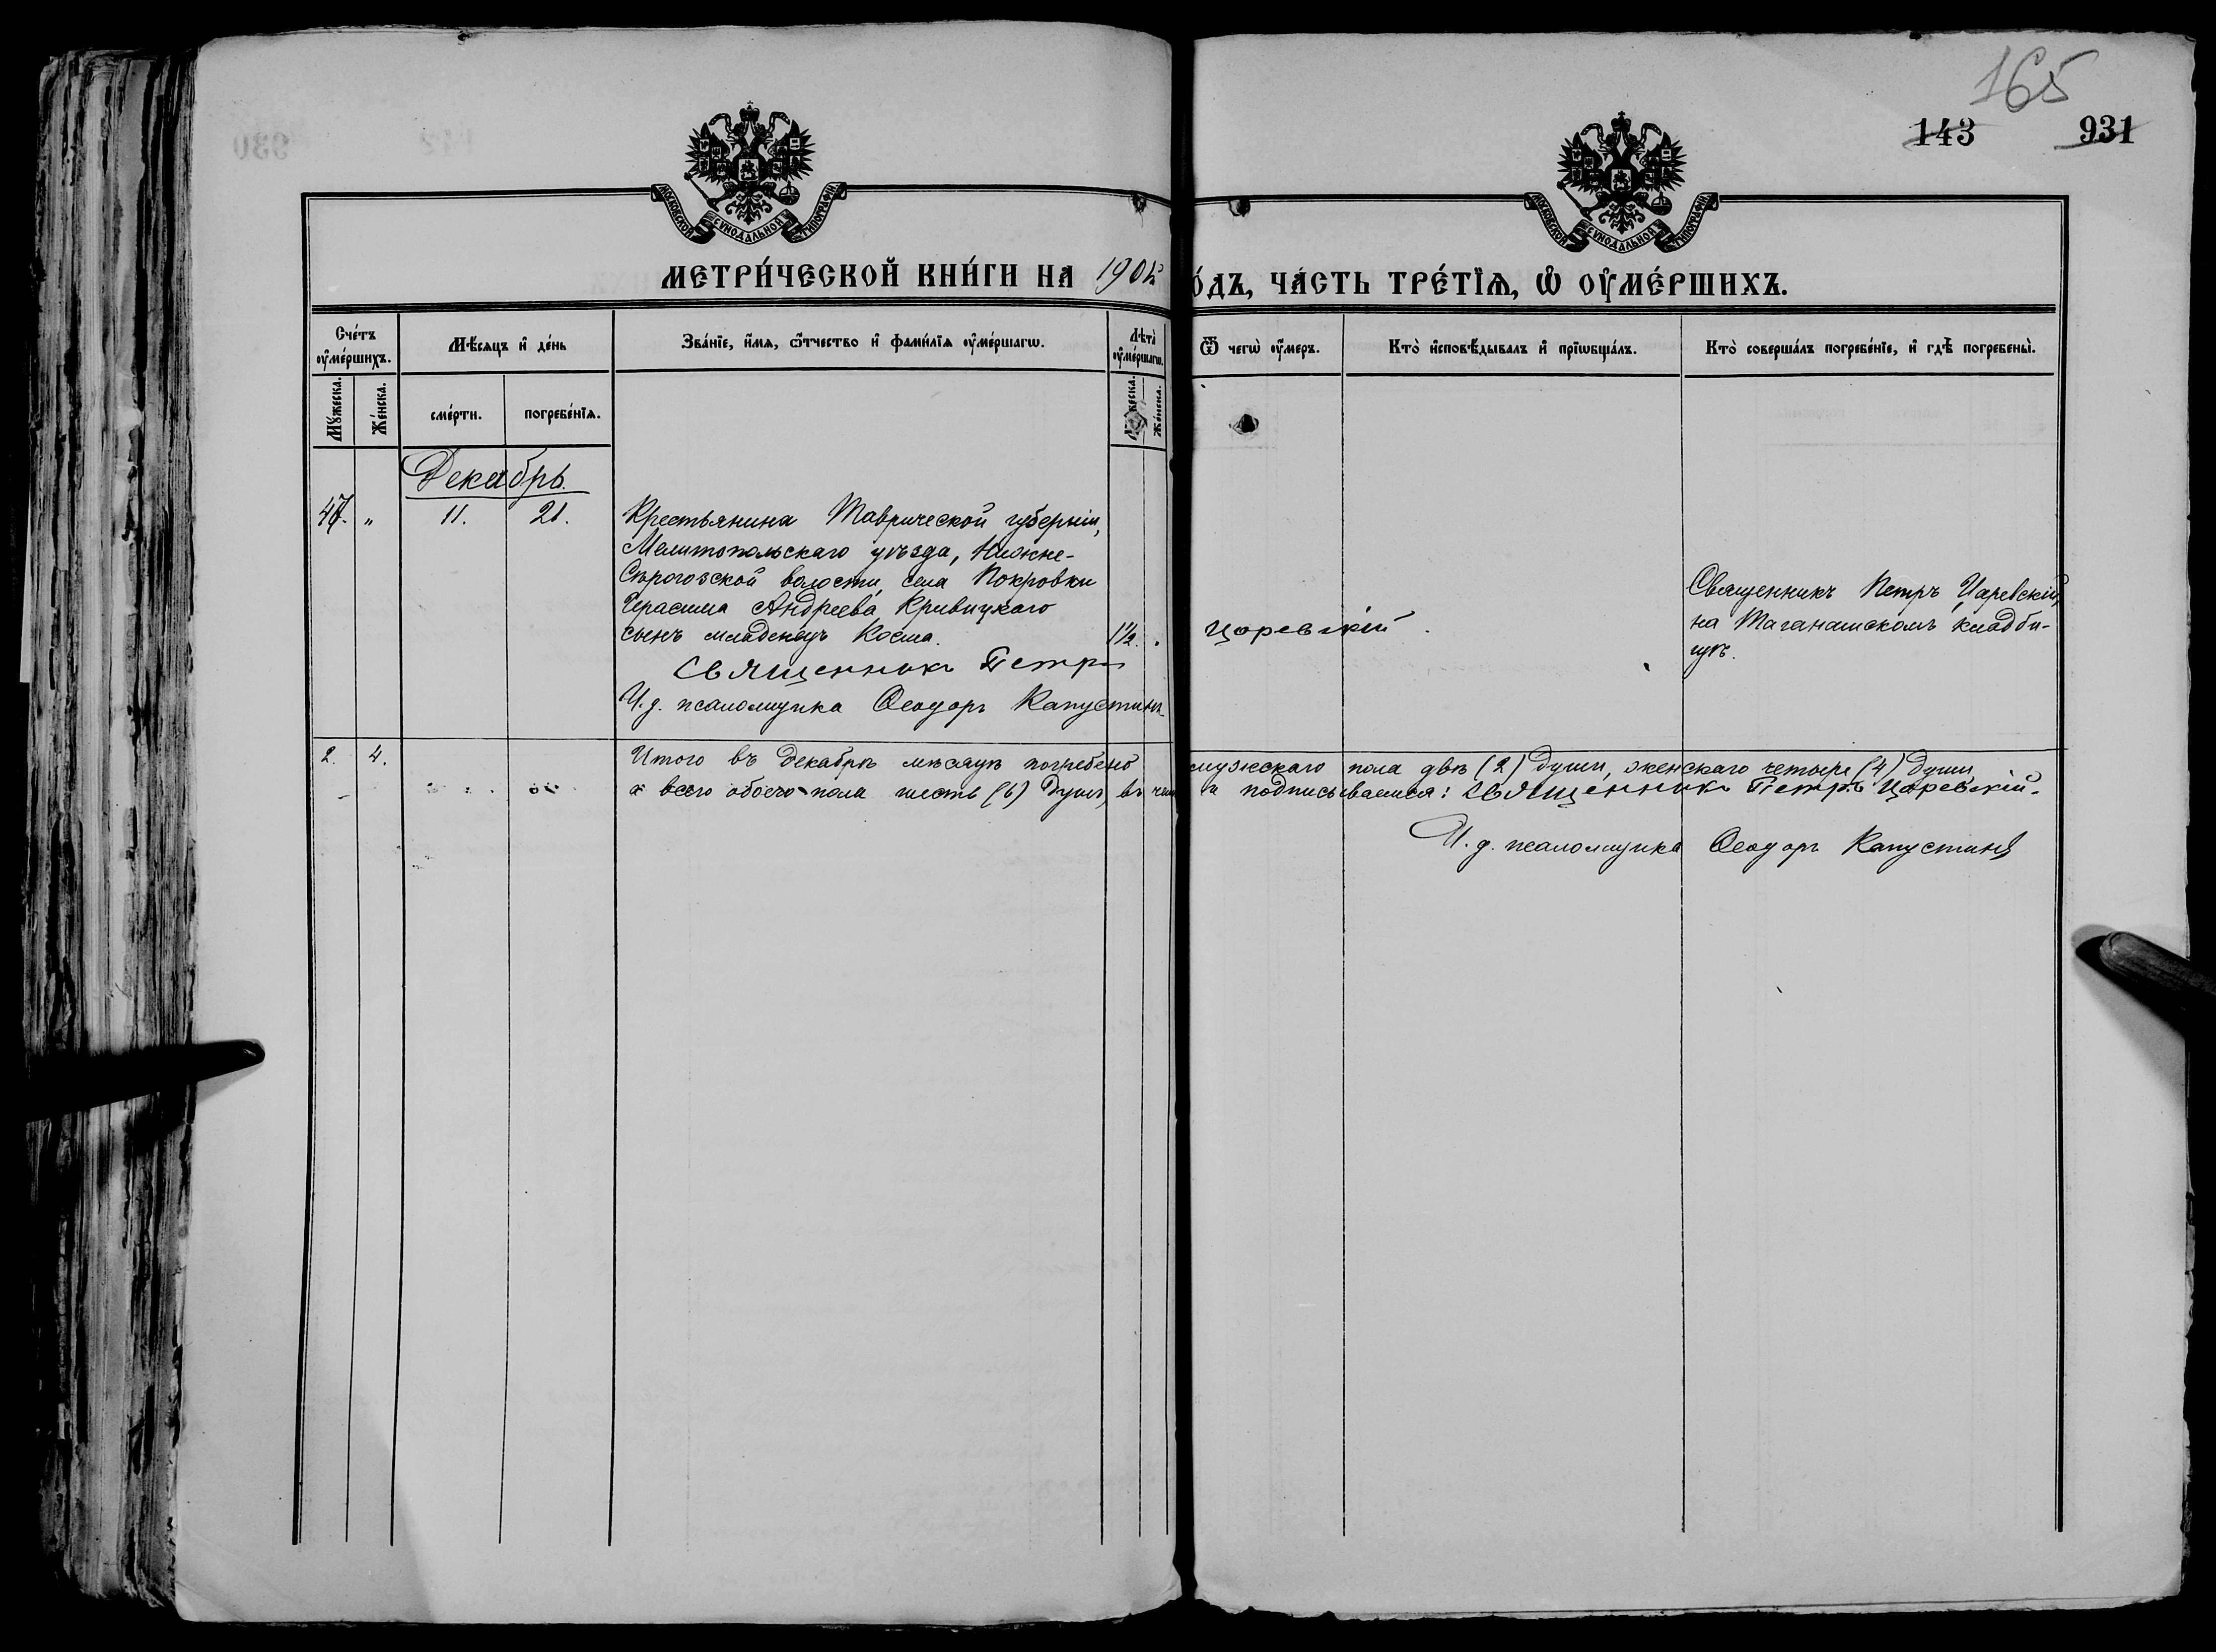 165
143 931
МОСКОВСКОЙ СѴНОДАЛЬНОЙ ТИПОГРАФІИ
МОСКОВСКОЙ СѴНОДАЛЬНОЙ ТИПОГРАФІИ
МЕТРИ́ЧЕСКОЙ КНИ́ГИ НА 190 о́дъ, ЧА́СТЬ ТРЕ́ТЇѦ, Ѡ҆ ОУ҆МЕ́РШИХЪ.
Сче́тъ оу҆ме́ршихъ.
Мꙋ́жеска. Же́нска.
Мѣ́сяцъ и҆ де́нь
сме́рти. погребе́нїѧ.
Зва́нїе, и҆́мѧ, ѻ҆́тчество и҆ фами́лїѧ оу҆ме́ршагѡ.
Лѣ́та оу҆ме́ршагѡ.
Же́нска.
Ѿ чегѡ̀ оу҆́меръ.
Кто̀ и҆сповѣ́дывалъ и҆ прїѡбща́лъ.
Кто̀ соверша́лъ погребе́нїе, и҆ гдѣ̀ погребены̀.
Декабрь.
47. " 11. 21. Крестьянина Таврической губерніи,
Мелитопольскаго уѣзда, Нижне-
Сѣрогозской волости, села Покровки
Герасима Андреева Кривицкаго
сынъ младенецъ Косма. 1½.
Священникъ Петръ Царевскій.
И. д. псаломщика Ѳеодоръ Капустинъ
Священникъ Петръ Царевскій,
на Таганашскомъ кладби-
щѣ.
2. 4. Итого въ Декабрѣ мѣсяцѣ погребено мужескаго пола двѣ (2) души, женскаго четыре (4) души,
а всего обоего пола шесть (6) душъ, въ чемъ и подписываемся: Священникъ Петръ Царевскій.
И. д. псаломщика Ѳеодоръ Капустинъ